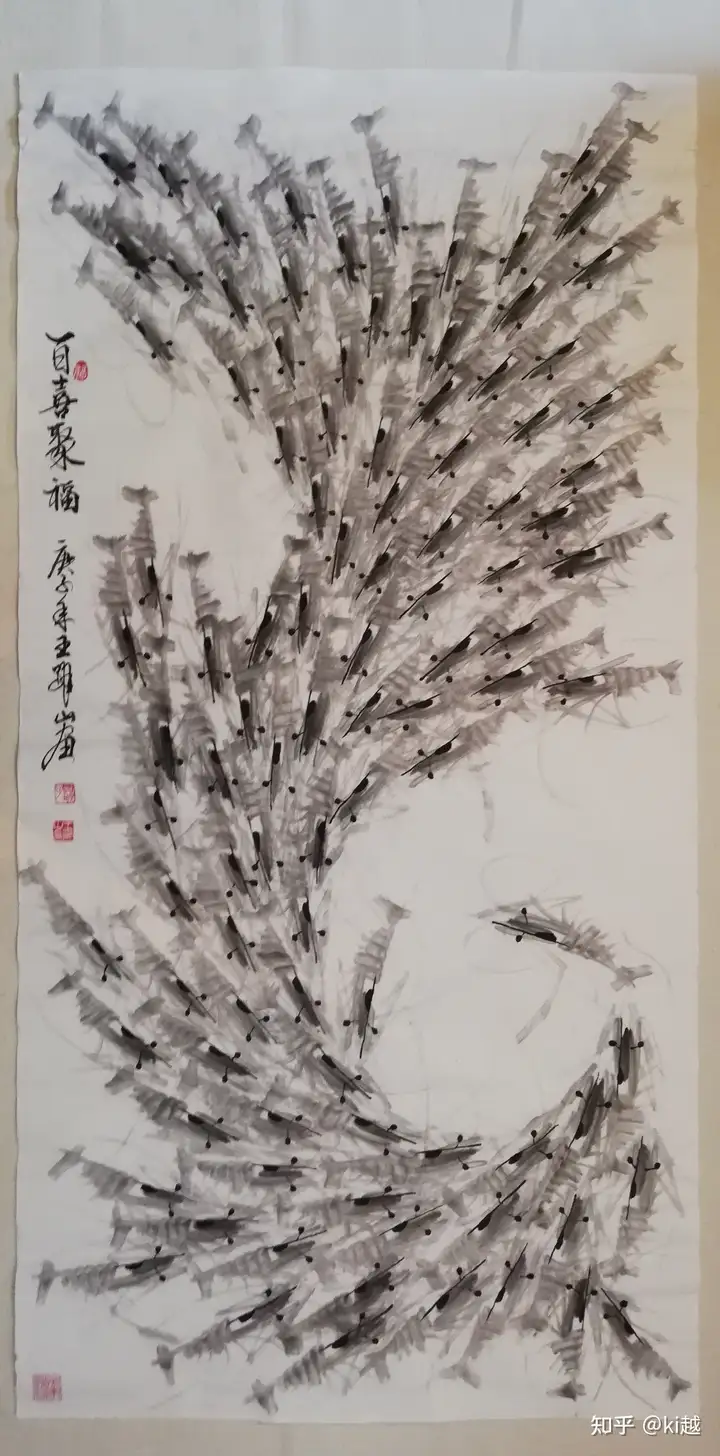 百喜聚福 庚子年王山画
知乎 @ki越